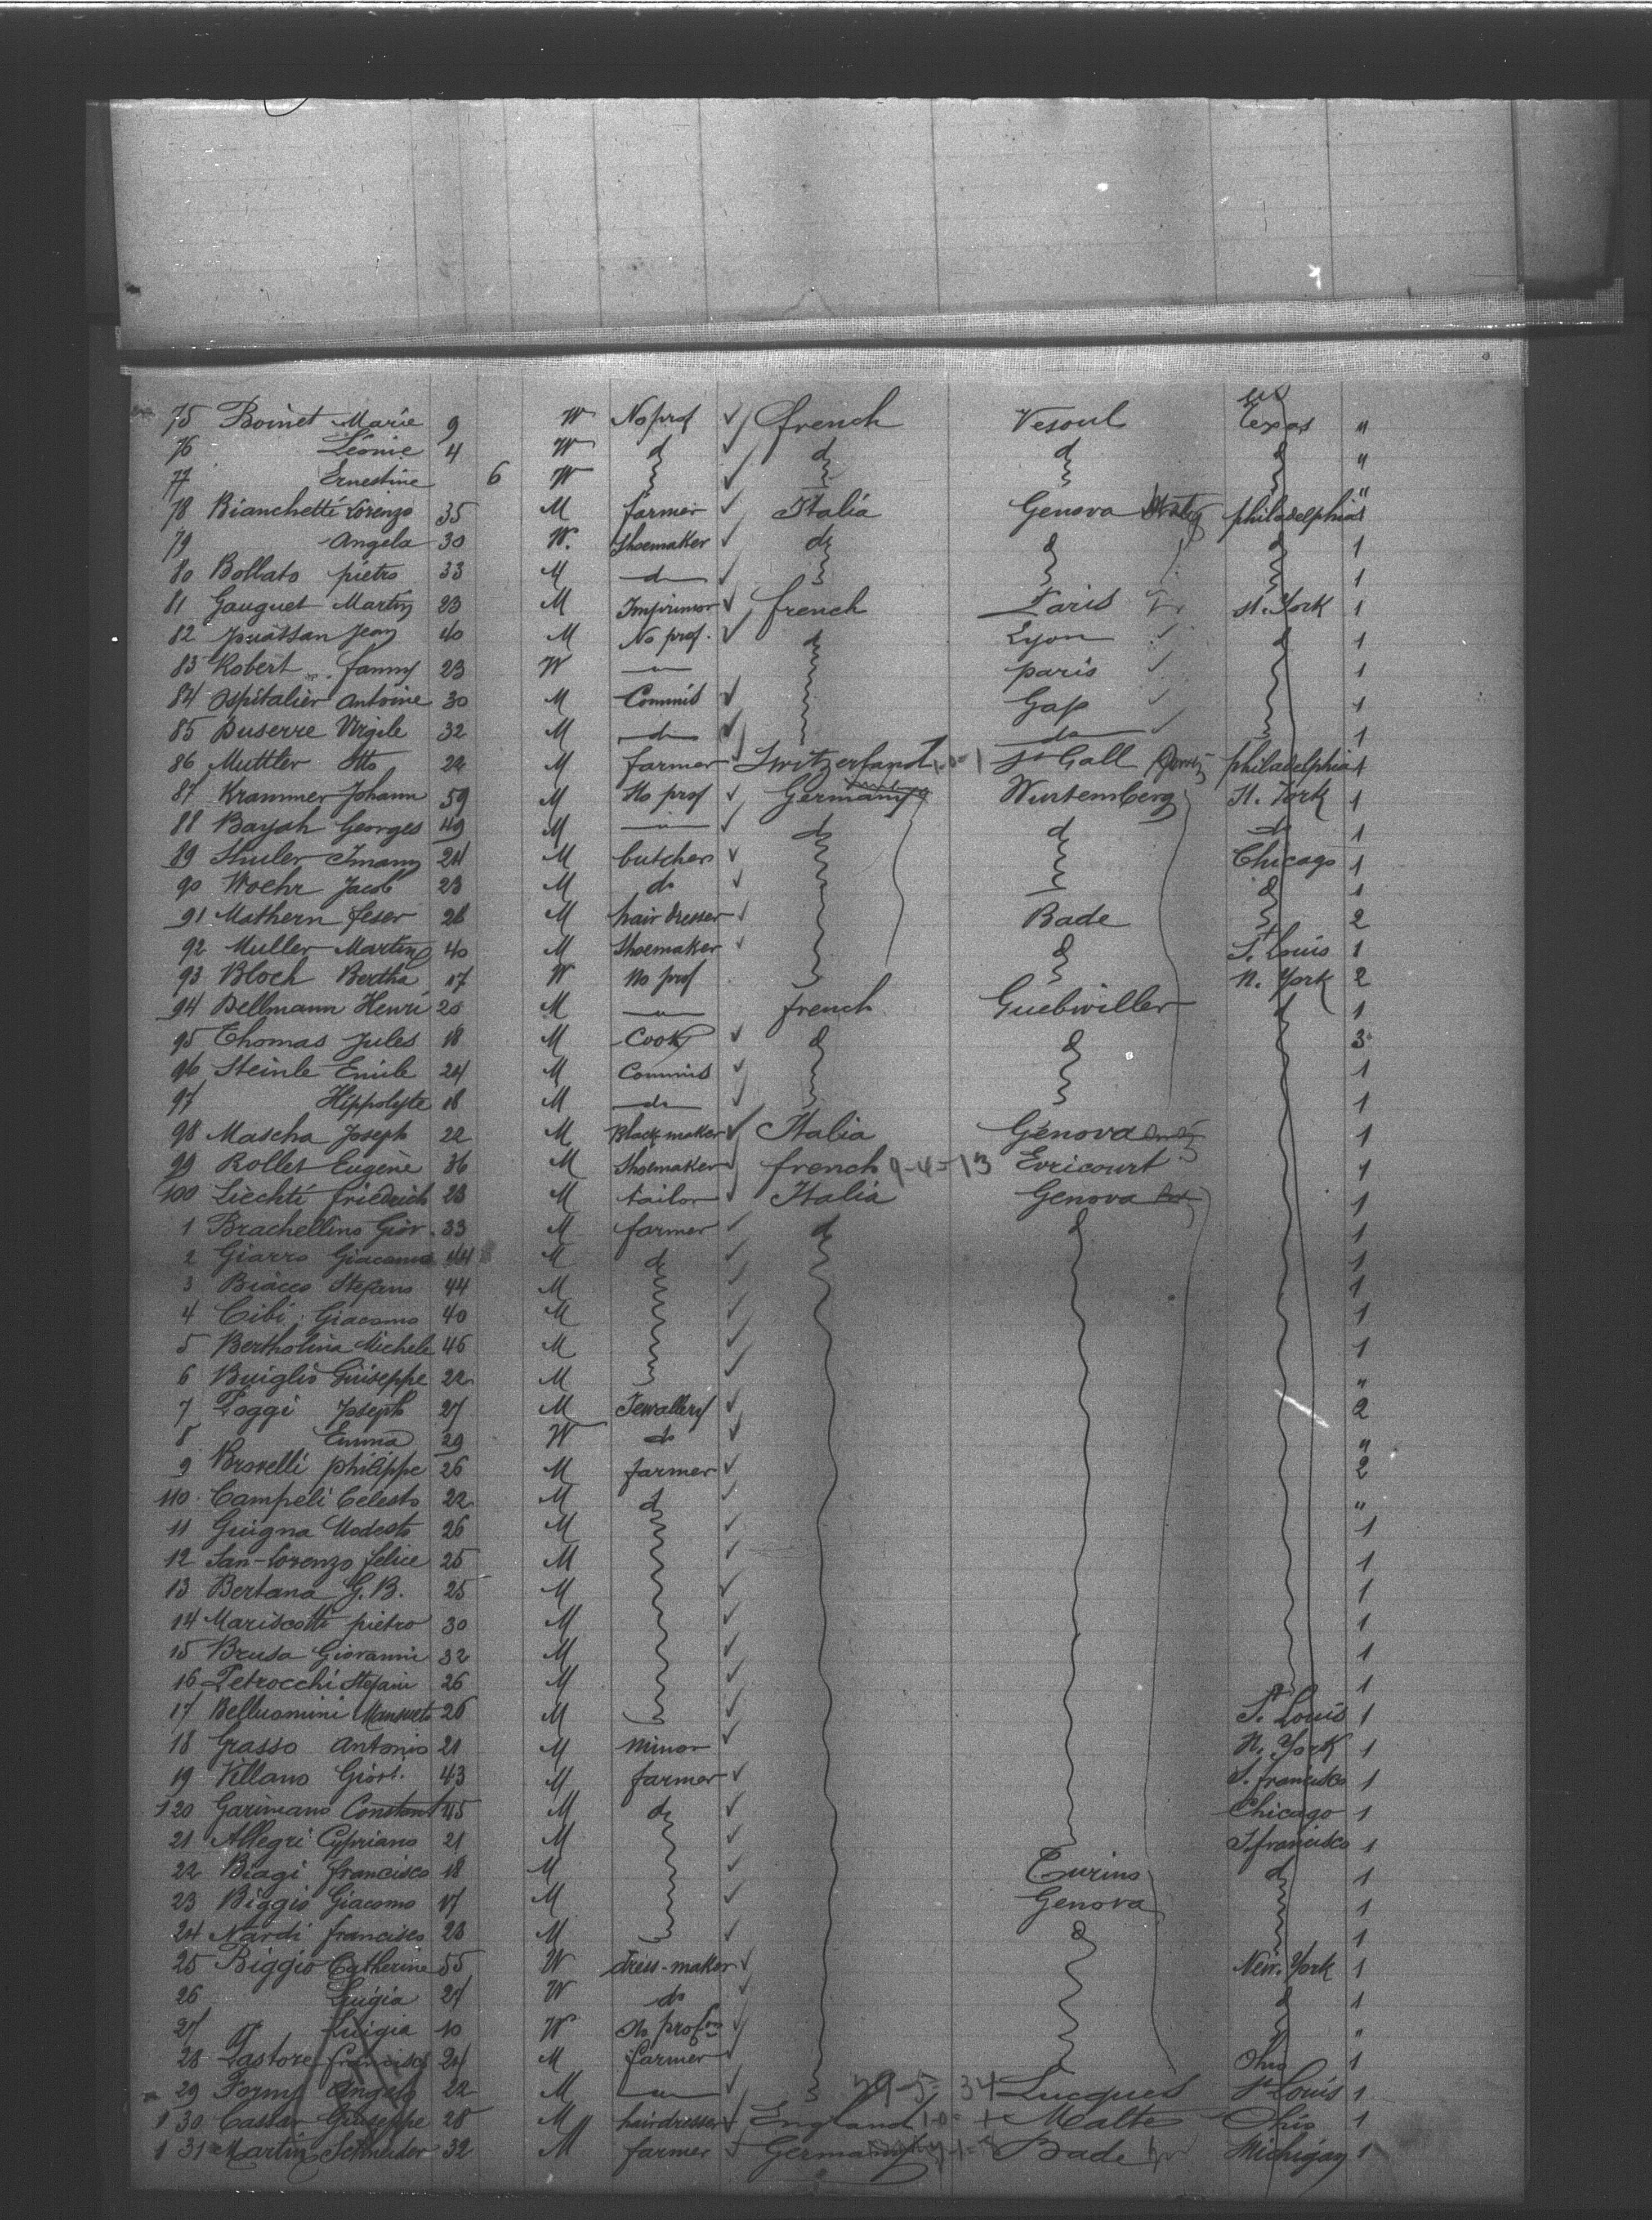 75 Boinet Marie 9 W No prof french Vesoul Texas "
76 Léonie 4 W d d d d "
77 Ernestine 6 W "
78 Bianchetti Lorenzo 35 M farmer Italia Genova philadelphia 1
79 Angela 30 W. Shoemaker do d d 1
80 Bollato pietro 33 M d 1
81 Gauguet Martin 23 M Imprimor french Paris N. York 1
82 Jean 40 M No prof. d Lyon d 1
83 Robert fanny 23 W " paris 1
84 Ospitalier Antoine 30 M Commis Gap 1
85 Duserre Virgile 32 M d do 1
86 Muttler Otto 22 M farmer Switzerland St Gall philadelphia 1
87 Krammer Johann 59 M No prof Germany Wurtemberg N. York 1
88 Georges 49 M " d d d 1
89 24 M butcher Chicago 1
90 Woehr Jacob 23 M do d 1
91 Mathern 26 M hair dresser Bade 2
92 Muller Martin 40 M Shoemaker d St Louis 1
93 Bloch Bertha 17 W No prof N. York 2
94 Dellmann Henri 20 M " french Guebwiller d 1
95 Thomas Jules 18 M Cook d d 3
96 Steinle Emile 24 M Commis 1
97 Hippolyte 18 M do 1
98 Mascha Joseph 22 M Italia Genova 1
99 Rollet Eugène 36 M Shoemaker french 9-4=13 Evricourt 1
100 Liechti friedrich 23 M tailor Italia Genova 1
1 Brachellino Giov. 33 M farmer d d 1
2 Giarro Giacomo 44 M d 1
3 Biacco Stefano 44 M 1
4 Cibi Giacomo 40 M 1
5 Bertholina Michele 46 M 1
6 Buiglio Giuseppe 22 M "
7 Poggi Joseph 27 M Jewallery 2
8 Emma 29 W do "
9 Brovelli philippe 26 M farmer 2
110 Campeli Celesto 22 M d "
11 Guigna Modesto 26 M 1
12 San-Lorenzo felice 25 M 1
13 Bertana G.B. 25 M 1
14 Mariscotti pietro 30 M 1
15 Brusa Giovanni 32 M 1
16 Petrocchi Stefani 26 M 1
17 Belluomini Mansueto 26 M St Louis 1
18 Grasso Antonio 21 M Minor N. York 1
19 Villano Giov. 43 M farmer S. francisco 1
120 Garimano Constant 45 M do Chicago 1
21 Allegri Cypriano 21 M S francisco 1
22 Biagi francisco 18 M Turino d 1
23 Biggio Giacomo 17 M Genova 1
24 Nardi francisco 23 M d 1
25 Biggio Catherine 55 W dress-maker New-York 1
26 Luigia 24 W do d 1
27 Luigia 10 W No prof "
28 Pastore francisco 24 M farmer Ohio 1
29 Angelo 22 M " 29-5= 34 Lucques St Louis 1
130 Cassar Giuseppe 28 M hairdresser England Malte Ohio 1
131 Martin Schneider 32 M farmer Germany Bade Michigan 1